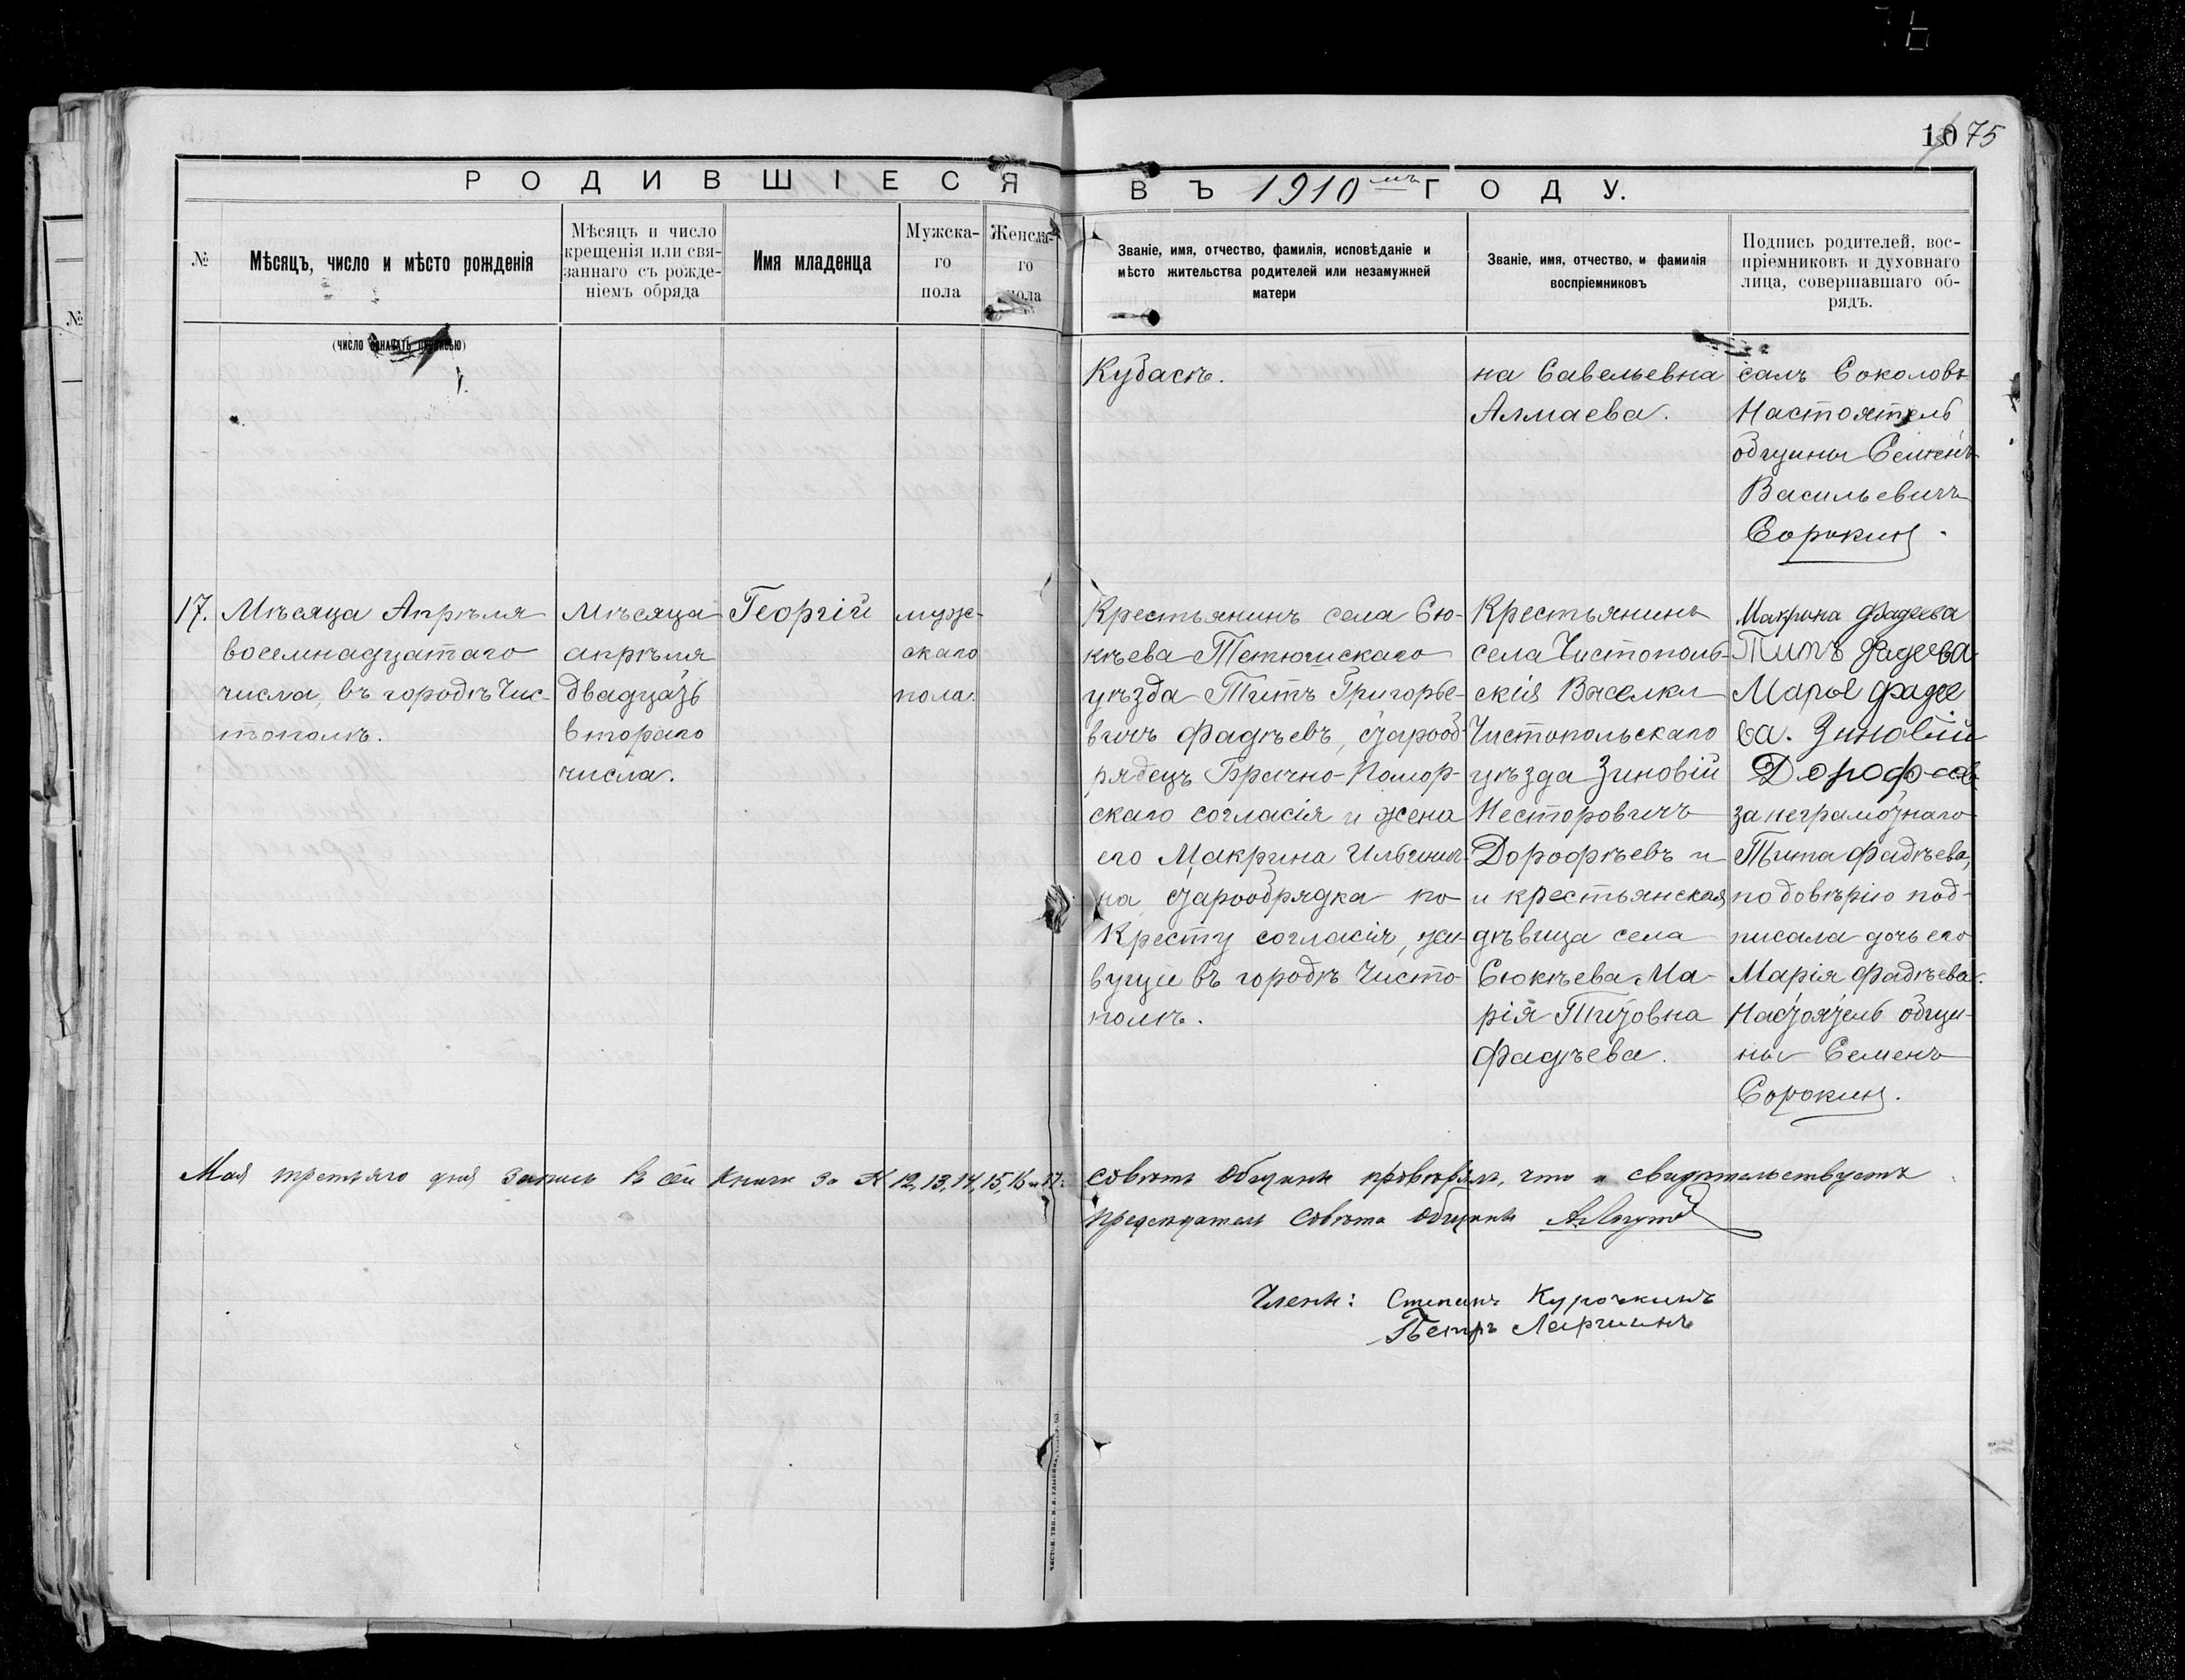 10 75
РОДИВШІЕСЯ ВЪ 1910мъ ГОДУ.
№
Мѣсяцъ, число и мѣсто рожденія
(число означать прописью)
Мѣсяцъ и число
крещенія или свя-
заннаго съ рожде-
ніемъ обряда
Имя младенца
Мужска-
го
пола
Женска-
го
пола
Званіе, имя, отчество, фамилія, исповѣданіе и
мѣсто жительства родителей или незамужней
матери
Званіе, имя, отчество, и фамилія
воспріемниковъ
Подпись родителей, вос-
пріемниковъ и духовнаго
лица, совершавшаго об-
рядъ.
Кубасѣ.
на Савельевна
Алмаева.
салъ Соколовъ
Настоятель
общины Семенъ
Васильевичъ
Сорокин
17.
Мѣсяца Апрѣля
восемнадцатаго
числа, въ городѣ Чис-
тополѣ.
Мѣсяца
апрѣля
двадцать
второго
числа.
Георгій
муж-
скаго
пола.
Крестьянинъ села Сю-
кѣева Тетюшскаго
уѣзда Титъ Григорье-
вичъ Фадѣевъ, старооб-
рядецъ Брачно-Помор-
скаго согласія и жена
его Макрина Ильинич-
на старообрядка по-
Кресту согласія, жи-
вущіе въ городѣ Чисто-
полѣ.
Крестьянинъ
села Чистополь-
скія Выселки
Чистопольскаго
уѣзда Зиновій
Несторовичъ
Дорофѣевъ и
и крестьянская
дѣвица села
Сюкѣева Ма-
рія Титовна
Фадѣева.
Макрина Фадеева
Титъ Фадеева
Марья Фаде
ва. Зиновій
Дорофеев
за неграмотнаго
Тита Фадѣева,
по довѣрію под-
писала дочь его
Марія Фадѣева.
Настоятель общи-
ны Семенъ
Сорокин.
Мая третьяго дня запись в сей книги за № 12, 13, 14, 15, 16 и 17. совѣтъ общины провѣрялъ, что и свидѣтельствуетъ
Предсѣдатель Совѣта Общины
Члены: Степанъ Курочкинъ
Петръ